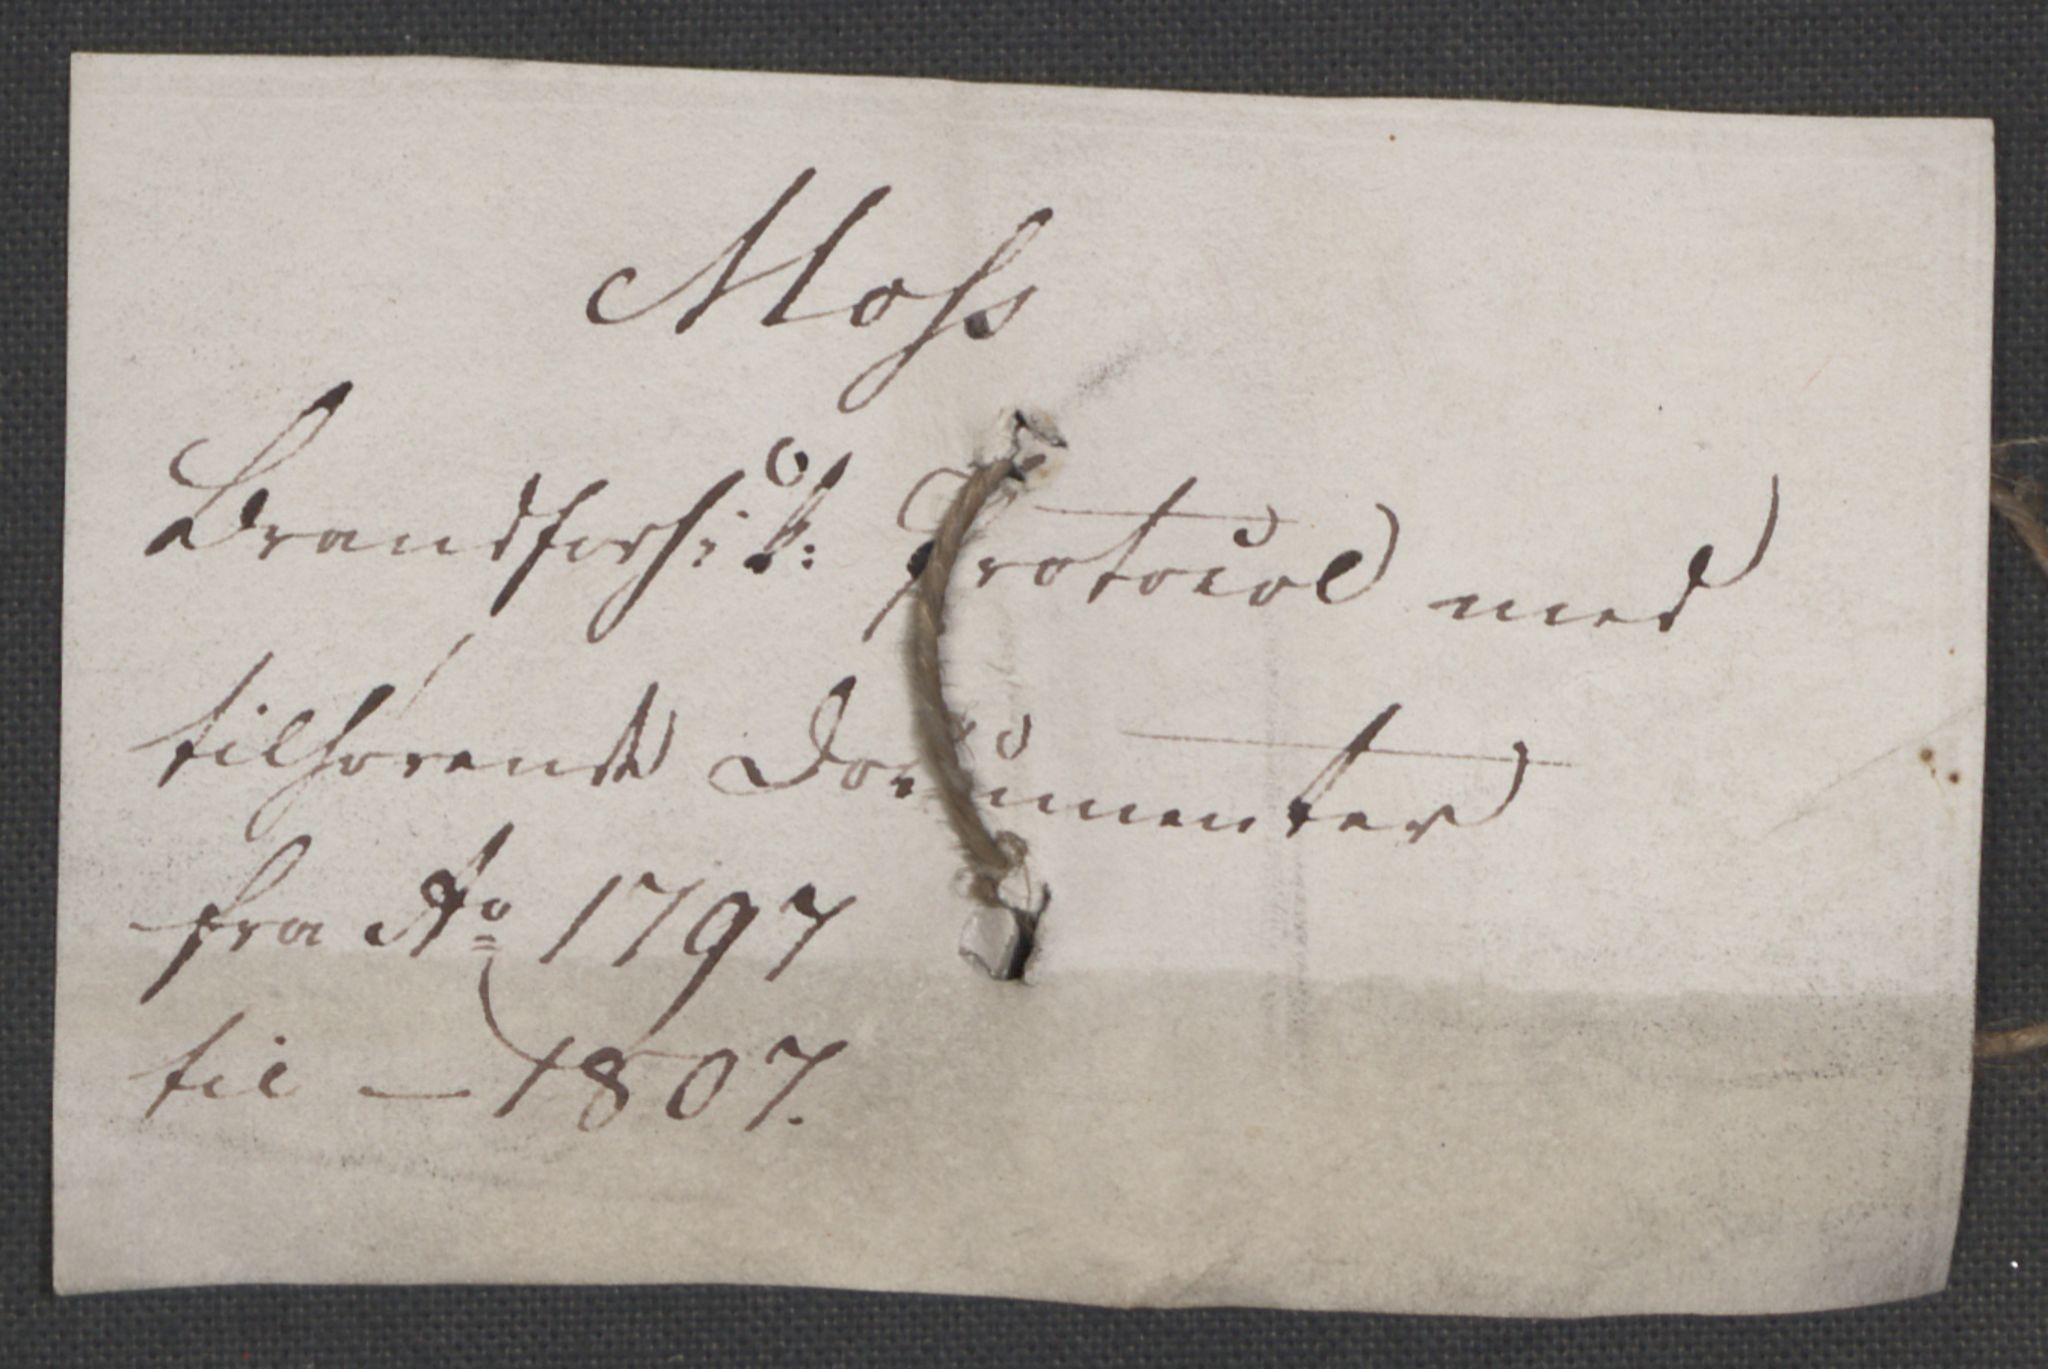 Moss
Brandforsik: Protocol med
tilhørende Documenter
fra Ao 1797
til — 1807.